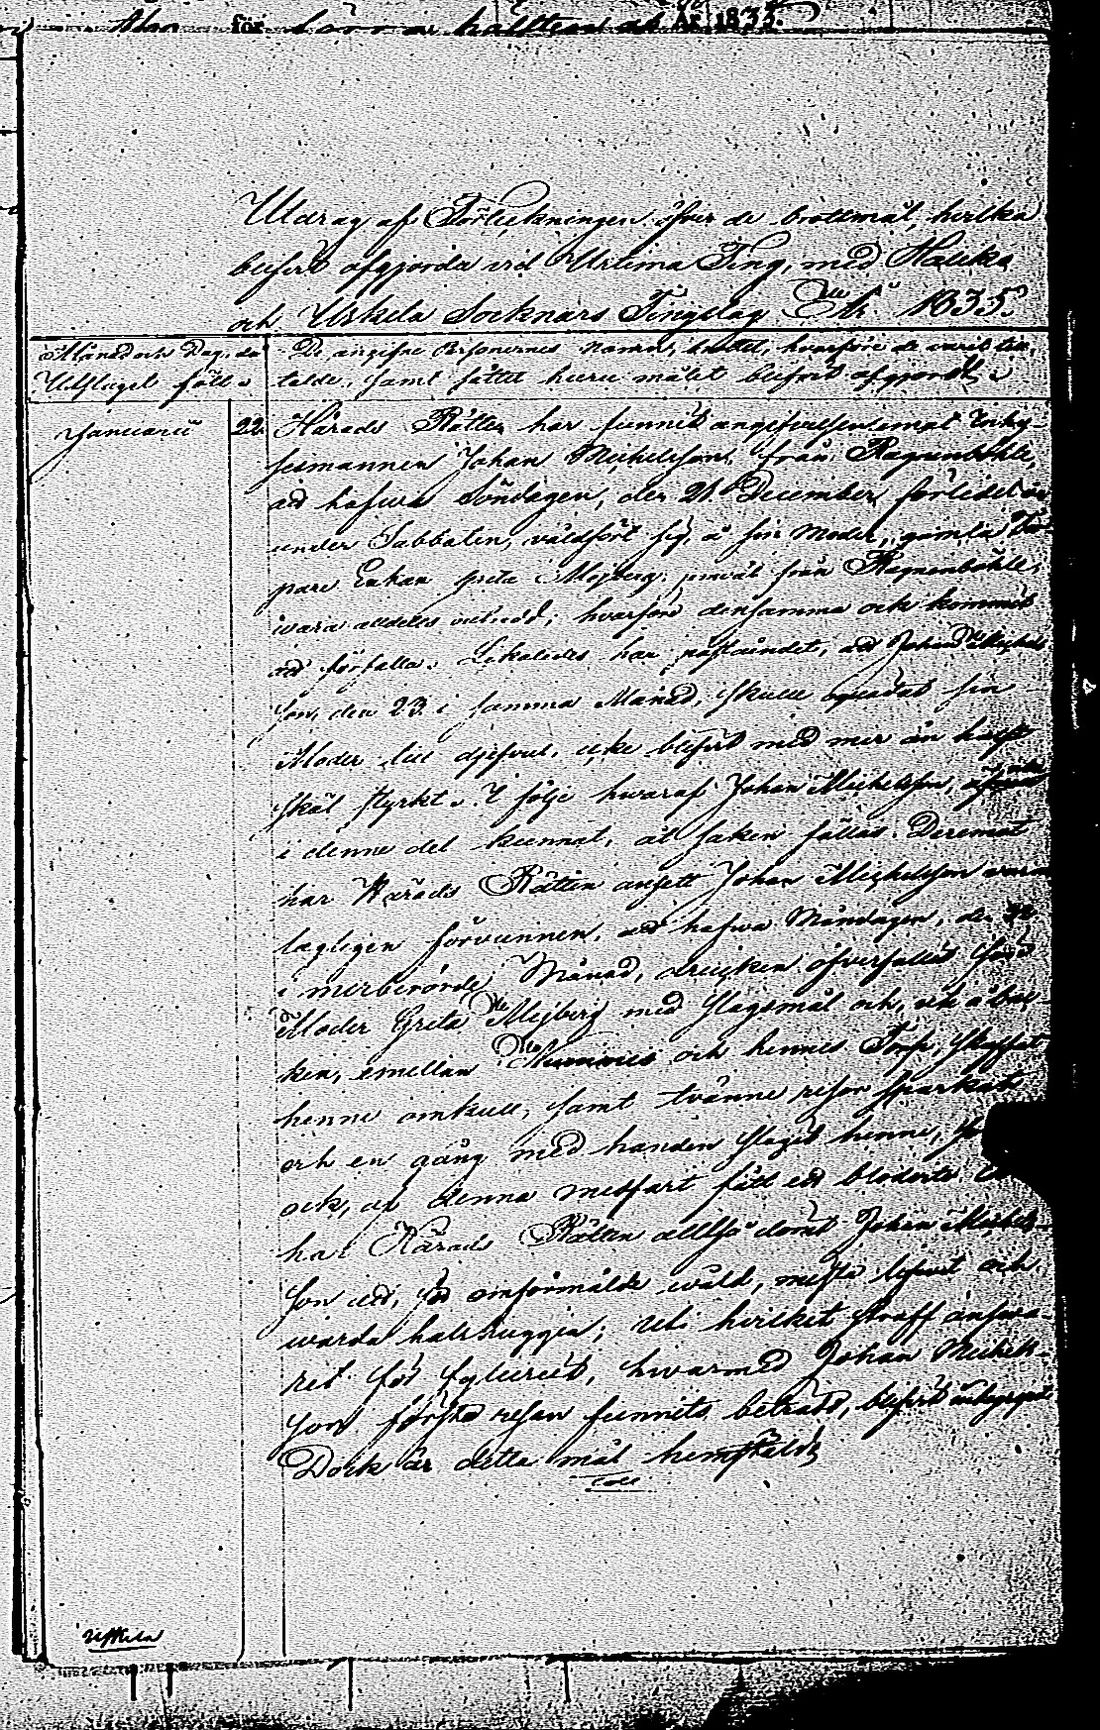 för År 1835.
Utdrag af Förteckningen öfver de brottmål, hvilka
blifvit afgjorda vid Urtima Ting, med Halikko
och Uskela Socknars Tingslag År 1835.
Månad och Dag, då De angifne Personernes namn, brottet, hvarföre de varit till-
Utslaget föll. talde, samt sättet huru målet blifvit afgjordt.
Januarii 22. Härads Rätten har funnit angifvelsen emot
Johan Michelsson, från
ad hafva Söndagen, den 21 December förledet år
under Sabbaten, våldfört sig å sin Moder, gamla
Enkan Greta Mojberg från
vara alldeles hvarföre densamma och kommit
ad förfalla. Likaledes har påståendet, ad Johan Michels-
son, den 23 i samma Månad, skulle sin
Moder till djefvul, icke blifvit med mer än half
skäl styrkt. I följe hvaraf Johan Michelsson,
i denne del kunnat, åt saken fällas. Deremot
har Härads Rätten ansett Johan Michelsson vara
lagligen förvunnen, ad hafva Måndagen, den 22
i merberörde Månad, drucken öfverfallit sin
Moder Greta Mejberg med slagsmål och,
ken, emellan och hennes Torp,
henne omkull, samt tvänne resor sparkat
och en gång med handen slagit henne,
ock, af denna medfart fått ett blodsår.
har Härads Rätten alltså dömt Johan Michels-
son ad, för omförmälde våld, mista lifvet och
varda halshuggen; uti hvilket straff ansva-
ret för fylleriet, hvarmed Johan Michels-
son första resan funnits beträdd, blifvit
Dock är detta mål hemstäldt